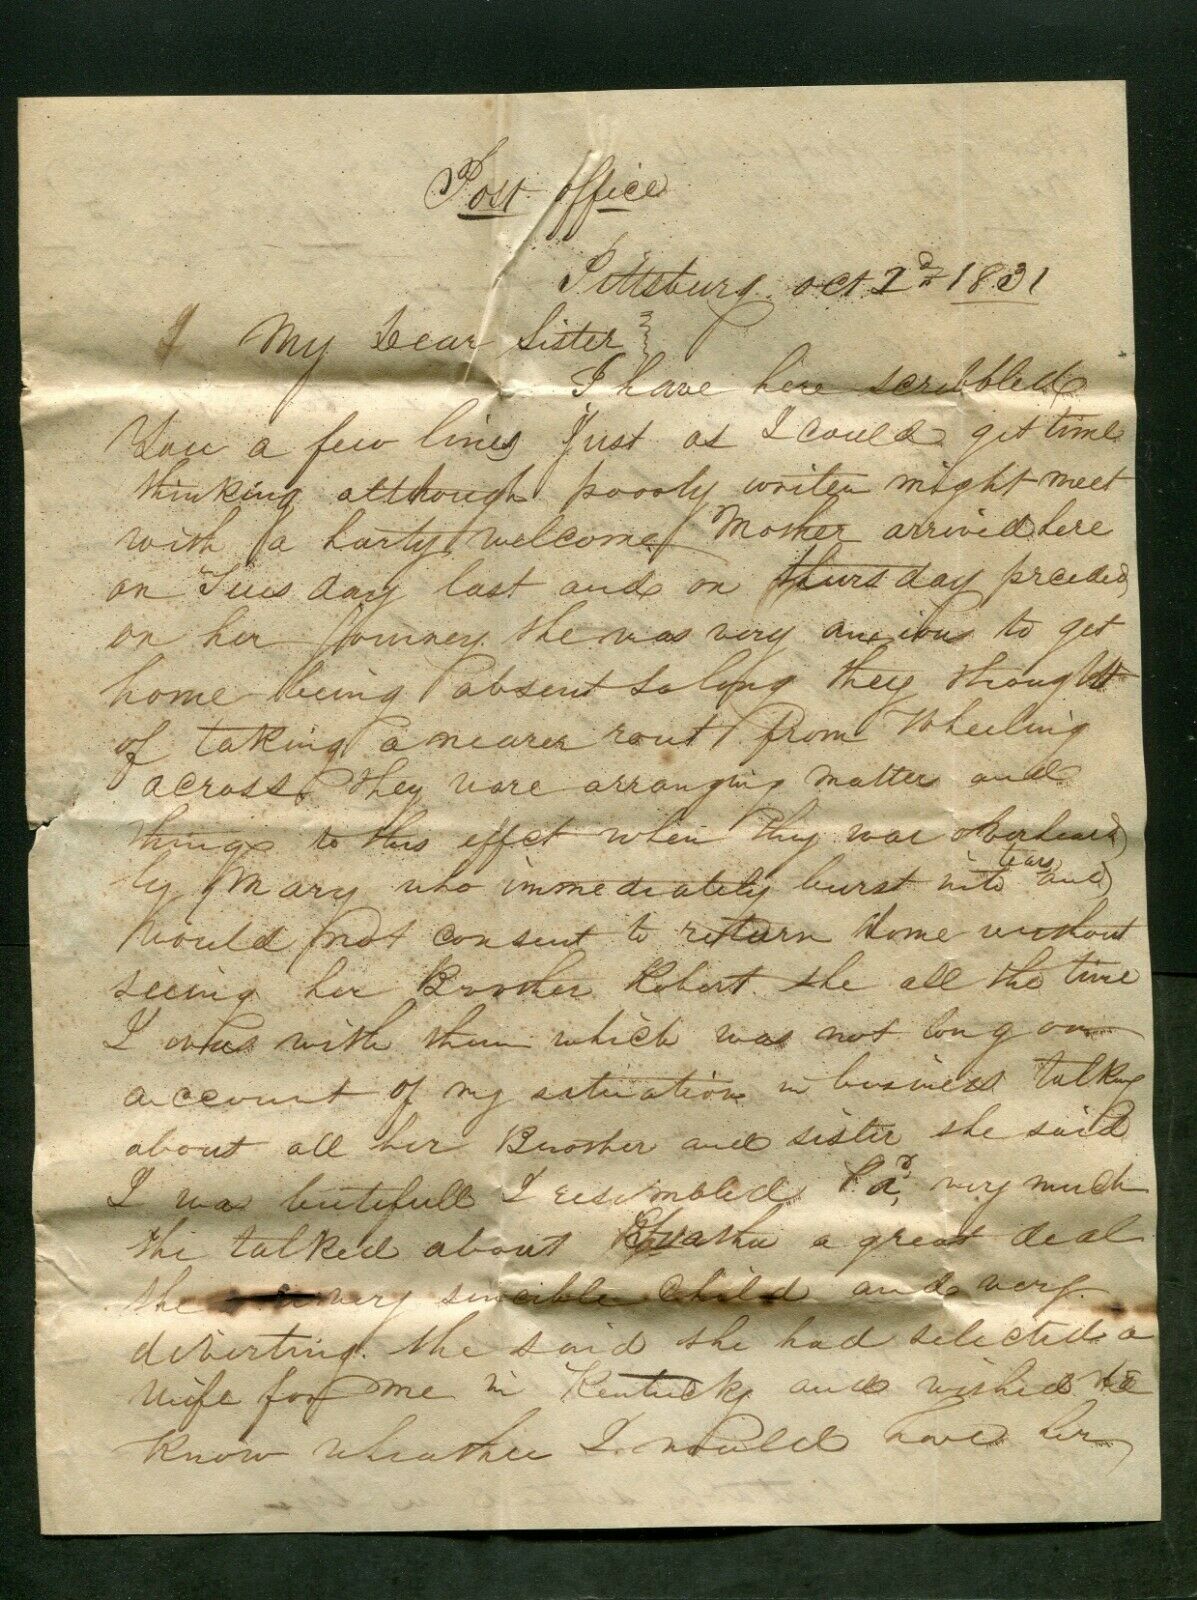 Post Office
Pittsburg Oct 2d 1831
My Dear Sister
I have here scribbled
You a few lines just as I could get time
thinking although poorly writen might meet
with a harty welcome Mother arrived here
on Tuesday last and on thursday preceded
on her journey she was very anxious to get
home being absent so long they thought
of taking a nearer rout from Wheeling
across they ware arranging matter and
things to this effect when they war overheard
by Mary who immediately burst into tears and
would not consent to return home without
seeing her Brother Robert she all the time
I was with them which was not long on
account of my situation in business talking
about all her Brother and sister she said
I wa butifull I resimbled Pa, very much
she talked about a great deal
she very sincible child and very
diverting she said she had selected a
wife for me in Kentucky and wished to
know wheather I would have her